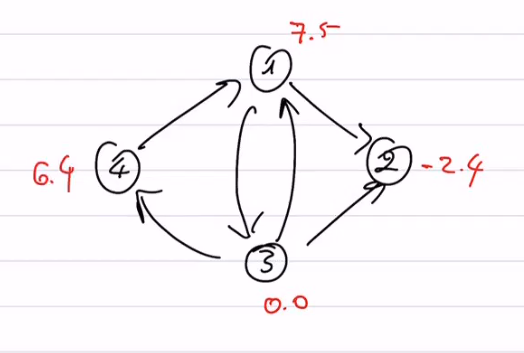 7.5
1
6.4 4 2 -2.4
3
0.0